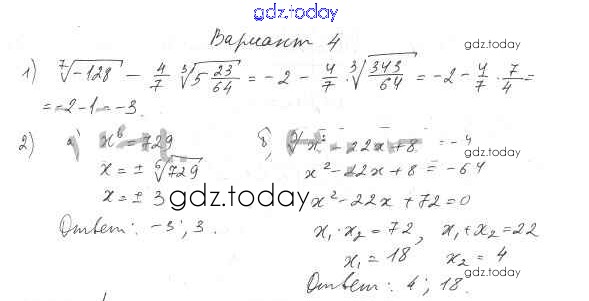 gdz.today
Вариант 4
gdz.today
1) ⁷√-128 - 4/7 · ³√(5 23/64) = -2 - 4/7 · ³√(343/64) = -2 - 4/7 · 7/4 =
= -2 - 1 = -3.
2) а) x⁶ = 729
x = ± ⁶√729
x = ± 3
Ответ: -3; 3.
б) ³√(x² - 22x + 8) = -4
gdz.today
x² - 22x + 8 = -64
gdz.today
x² - 22x + 72 = 0
x₁ · x₂ = 72, x₁ + x₂ = 22
x₁ = 18 x₂ = 4
gdz.today
Ответ: 4; 18.